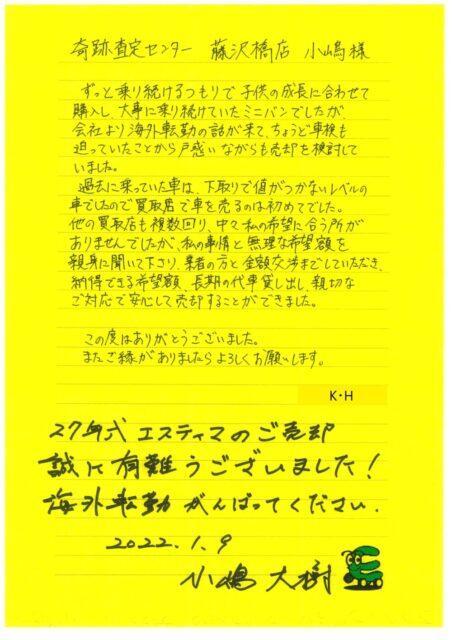 奇跡査定センター 藤沢橋店 小嶋様
ずっと乗り続けるつもりで子供の成長に合わせて
購入し、大事に乗り続けていたミニバンでしたが、
会社より海外転勤の話が来て、ちょうど車検も
迫っていたことから戸惑いながらも売却を検討して
いました。
過去に乗っていた車は、下取りで値がつかないレベルの
車でしたので買取店で車を売るのは初めてでした。
他の買取店も複数回り、中々私の希望に合う所が
ありませんでしたが、私の事情と無理な希望額を
親身に聞いて下さり、業者の方と金額交渉までしていただき、
納得できる希望額、長期の代車貸し出し、親切な
ご対応で安心して売却することができました。
この度はありがとうございました。
またご縁がありましたらよろしくお願いします。
K・H
27年式 エスティマのご売却
誠に有難うございました!
海外転勤がんばってください.
2022.1.9
小嶋 大樹